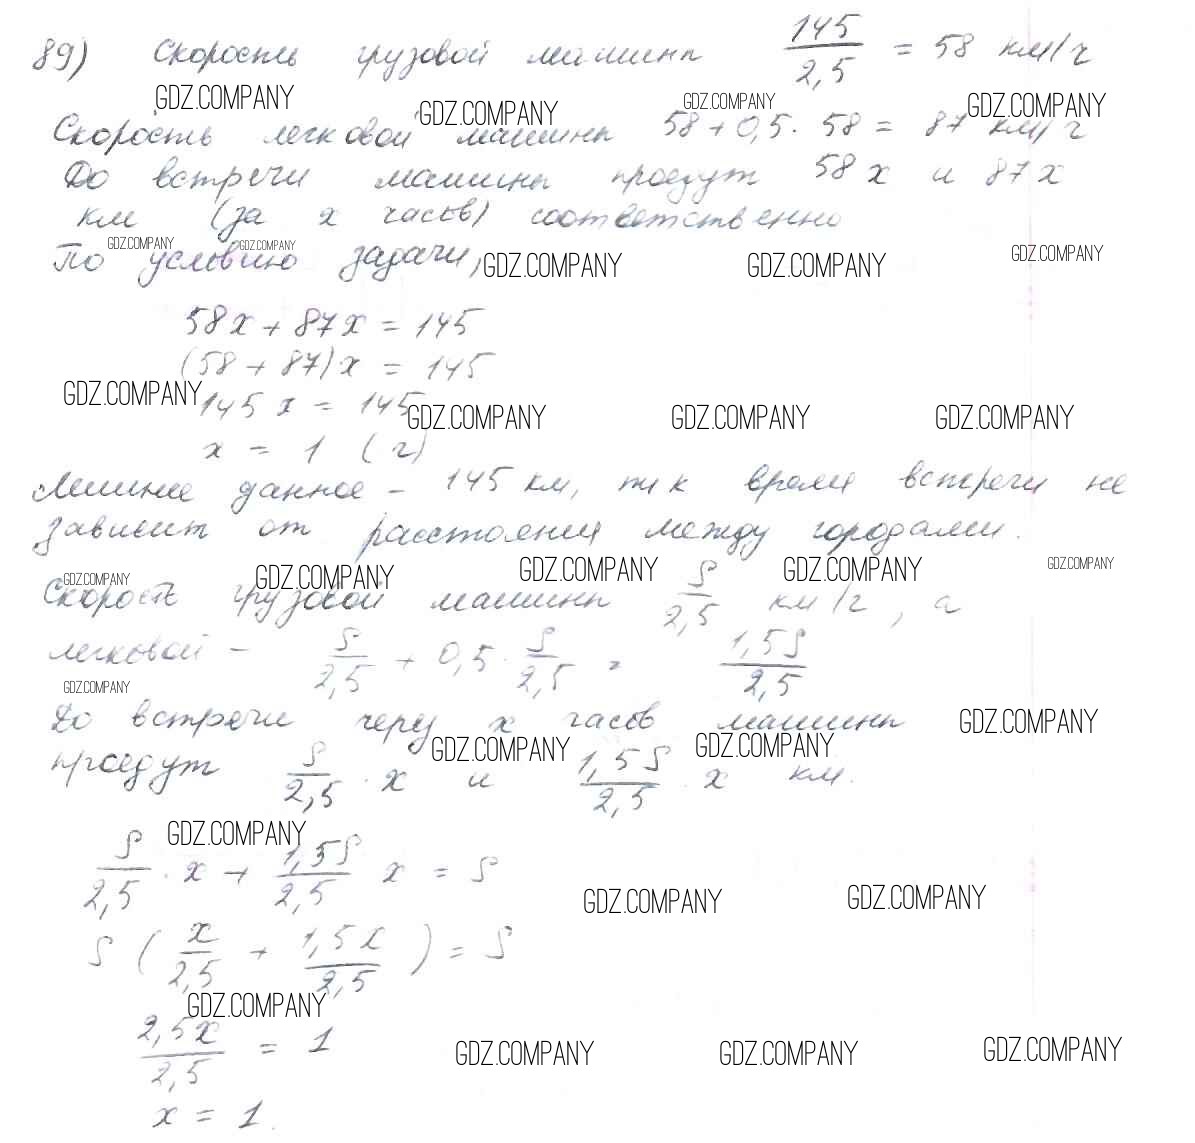 89) Скорость грузовой машины 145/2,5 = 58 км/ч
GDZ.COMPANY GDZ.COMPANY GDZ.COMPANY GDZ.COMPANY
Скорость легковой машины 58 + 0,5 · 58 = 87 км/ч
До встречи машины проедут 58x и 87x
км (за x часов) соответственно
GDZ.COMPANY GDZ.COMPANY
По условию задачи, GDZ.COMPANY GDZ.COMPANY GDZ.COMPANY
58x + 87x = 145
(58 + 87)x = 145
GDZ.COMPANY 145x = 145 GDZ.COMPANY GDZ.COMPANY GDZ.COMPANY
x = 1 (ч)
Лишнее данное – 145 км, т.к время встречи не
зависит от расстояния между городами.
GDZ.COMPANY GDZ.COMPANY GDZ.COMPANY GDZ.COMPANY GDZ.COMPANY
Скорость грузовой машины S/2,5 км/ч, а
легковой – S/2,5 + 0,5 · S/2,5 = 1,5S/2,5
GDZ.COMPANY
До встречи через x часов машины GDZ.COMPANY
GDZ.COMPANY GDZ.COMPANY
проедут S/2,5 · x и 1,5S/2,5 · x км.
GDZ.COMPANY
S/2,5 · x + 1,5S/2,5 x = S
GDZ.COMPANY GDZ.COMPANY
S (x/2,5 + 1,5x/2,5) = S
GDZ.COMPANY
2,5x/2,5 = 1 GDZ.COMPANY GDZ.COMPANY GDZ.COMPANY
x = 1.